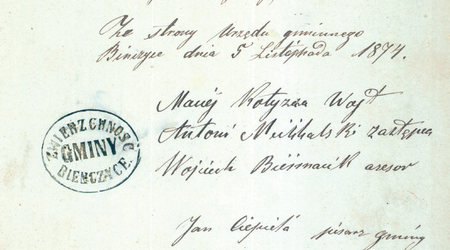 Ze strony Urzędu gminnego
Bieńczyce dnia 5 Listopada 1874.
Maciej Kotyzza Wójt
Antoni Michalski zastępca
ZWIERZCHNOŚĆ
GMINY
BIENCZYCE.
Wojciech asesor
Jan Ciepiela pisarz gminy